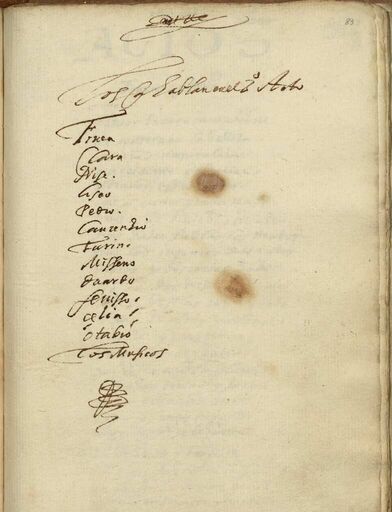 83
Los q hablan en el 2º Acto
Finea
Clara
Nise.
Liseo
Pedro.
Laurencio
Turin.
Misseno
Duardo
fenisso.
Celia
Otabio
Los Musicos